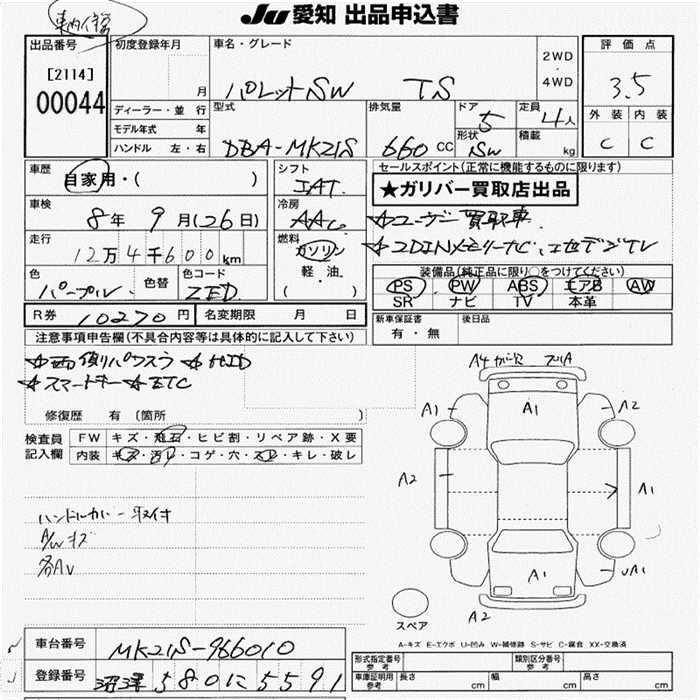 JU 愛知 出品申込書
出品番号
[2114]
00044
初度登録年月
月
車名・グレード
パレットSW TS
2WD
・
4WD
評価点
3.5
外装 内装
C C
ディーラー・並行
モデル年式 年
ハンドル 左・右
型式
DBA-MK21S
排気量
660 CC
ドア
5
形状
SW
定員
4人
積載
kg
車歴
自家用・( )
車検
8年 9月(26日)
走行
12万4千600km
色
パープル
色替
色コード
ZED
シフト
IAT
冷房
AAC
燃料
ガソリン
軽・油
( )
セールスポイント(正常に機能するものに限ります)
★ガリバー買取店出品
☆ユーザー買取車
☆2DINメモリーナビ、
装備品(純正品に限り○をつけてください)
PS PW ABS エアB AW
SR ナビ TV 本革
R券 10270円 名変期限 月 日
新車保証書
有・無
後日品
注意事項申告欄(不具合内容等は具体的に記入して下さい)
☆両側パワスラ ☆HID
☆スマートキー ☆ETC
修復歴 有 (箇所 )
検査員
記入欄
FW キズ・飛石・ヒビ割・リペア跡・X要
内装 キズ・汚レ・コゲ・穴・スレ・キレ・破レ
ハンドルカバー取付
A/Wキズ
各AU
A4
A1 A1 A2
A2 A1
A1 UA1
A2
スペア
A-キズ E-エクボ U-凹み W-補修跡 S-サビ C-腐食 XX-交換済
車台番号 MK21S-966010
登録番号 沼津 580 に 5591
形式指定番号
参考
類別区分番号
参考
車庫証明用
参考
長さ cm 幅 cm 高さ cm